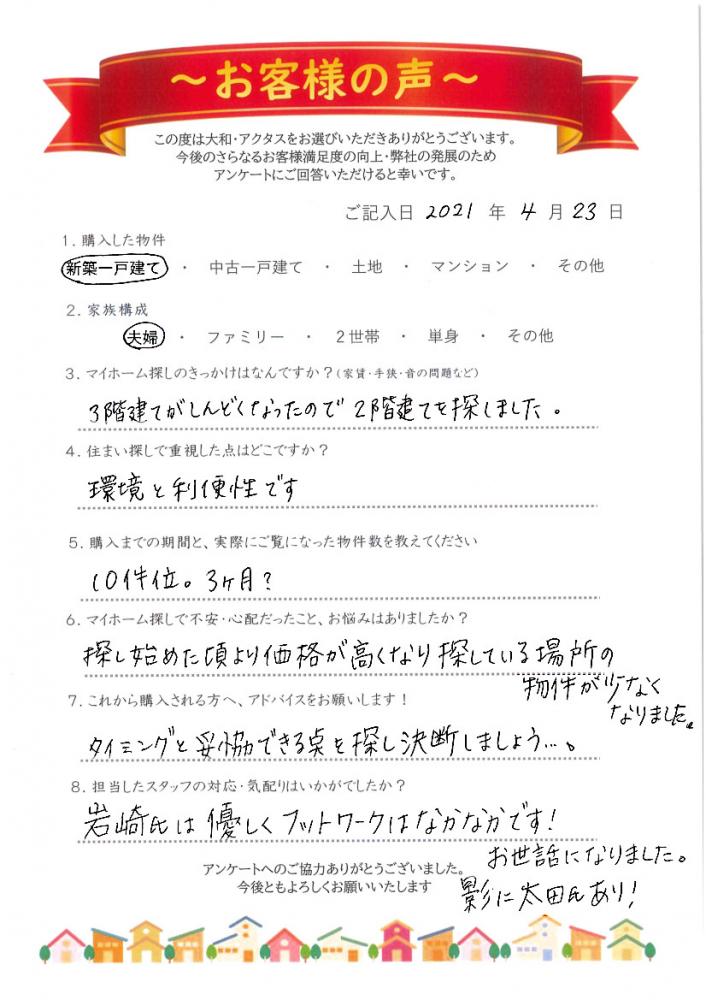 ～お客様の声～
この度は大和・アクタスをお選びいただきありがとうございます。
今後のさらなるお客様満足度の向上・弊社の発展のため
アンケートにご回答いただけると幸いです。
ご記入日 2021 年 4 月 23 日
1. 購入した物件
新築一戸建て ・ 中古一戸建て ・ 土地 ・ マンション ・ その他
2. 家族構成
夫婦 ・ ファミリー ・ 2世帯 ・ 単身 ・ その他
3. マイホーム探しのきっかけはなんですか？(家賃・手狭・音の問題など)
3階建てがしんどくなったので2階建てを探しました。
4. 住まい探しで重視した点はどこですか？
環境と利便性です
5. 購入までの期間と、実際にご覧になった物件数を教えてください
10件位。3ヶ月？
6. マイホーム探しで不安・心配だったこと、お悩みはありましたか？
探し始めた頃より価格が高くなり探している場所の
物件が少なく
なりました。
7. これから購入される方へ、アドバイスをお願いします！
タイミングと妥協できる点を探し決断しましょう…。
8. 担当したスタッフの対応・気配りはいかがでしたか？
岩崎氏は優しくフットワークはなかなかです！
お世話になりました。
影に太田氏あり！
アンケートへのご協力ありがとうございました。
今後ともよろしくお願いいたします